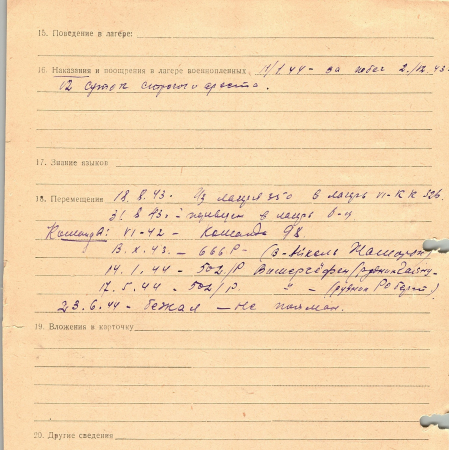 15. Поведение в лагере:
16. Наказания и поощрения в лагере военнопленных, 11/1.44 - за побег 2./12.43.
12 суток строгого ареста.
17. Знание языков
18. Перемещения 18.8.43. Из лагеря 350 в лагерь VI-К К 326
31.8.43. - привезен в лагерь
Команда: VI-42 - команда 98.
13.X.43. - 666Р -
14.1.44 - 502/Р
17.5.44 - 502/Р. " - (рудник Роберт)
23.6.44 - бежал - не пойман.
19. Вложения в карточку
20. Другие сведения